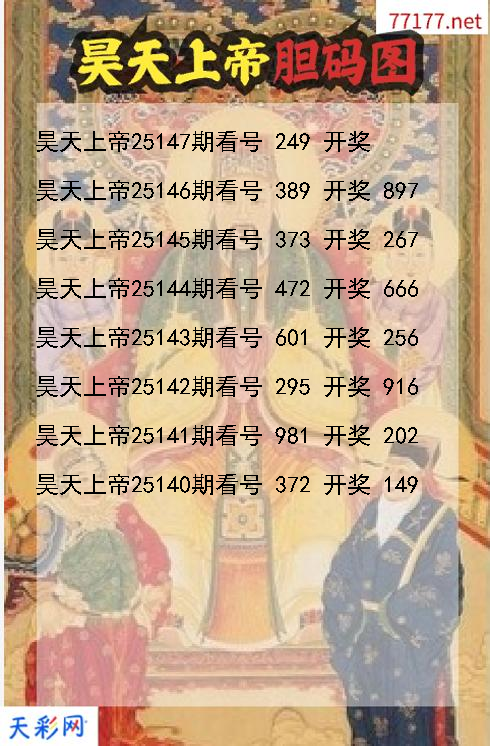 77177.net
昊天上帝胆码图
昊天上帝25147期看号 249 开奖
昊天上帝25146期看号 389 开奖 897
昊天上帝25145期看号 373 开奖 267
昊天上帝25144期看号 472 开奖 666
昊天上帝25143期看号 601 开奖 256
昊天上帝25142期看号 295 开奖 916
昊天上帝25141期看号 981 开奖 202
昊天上帝25140期看号 372 开奖 149
天彩网